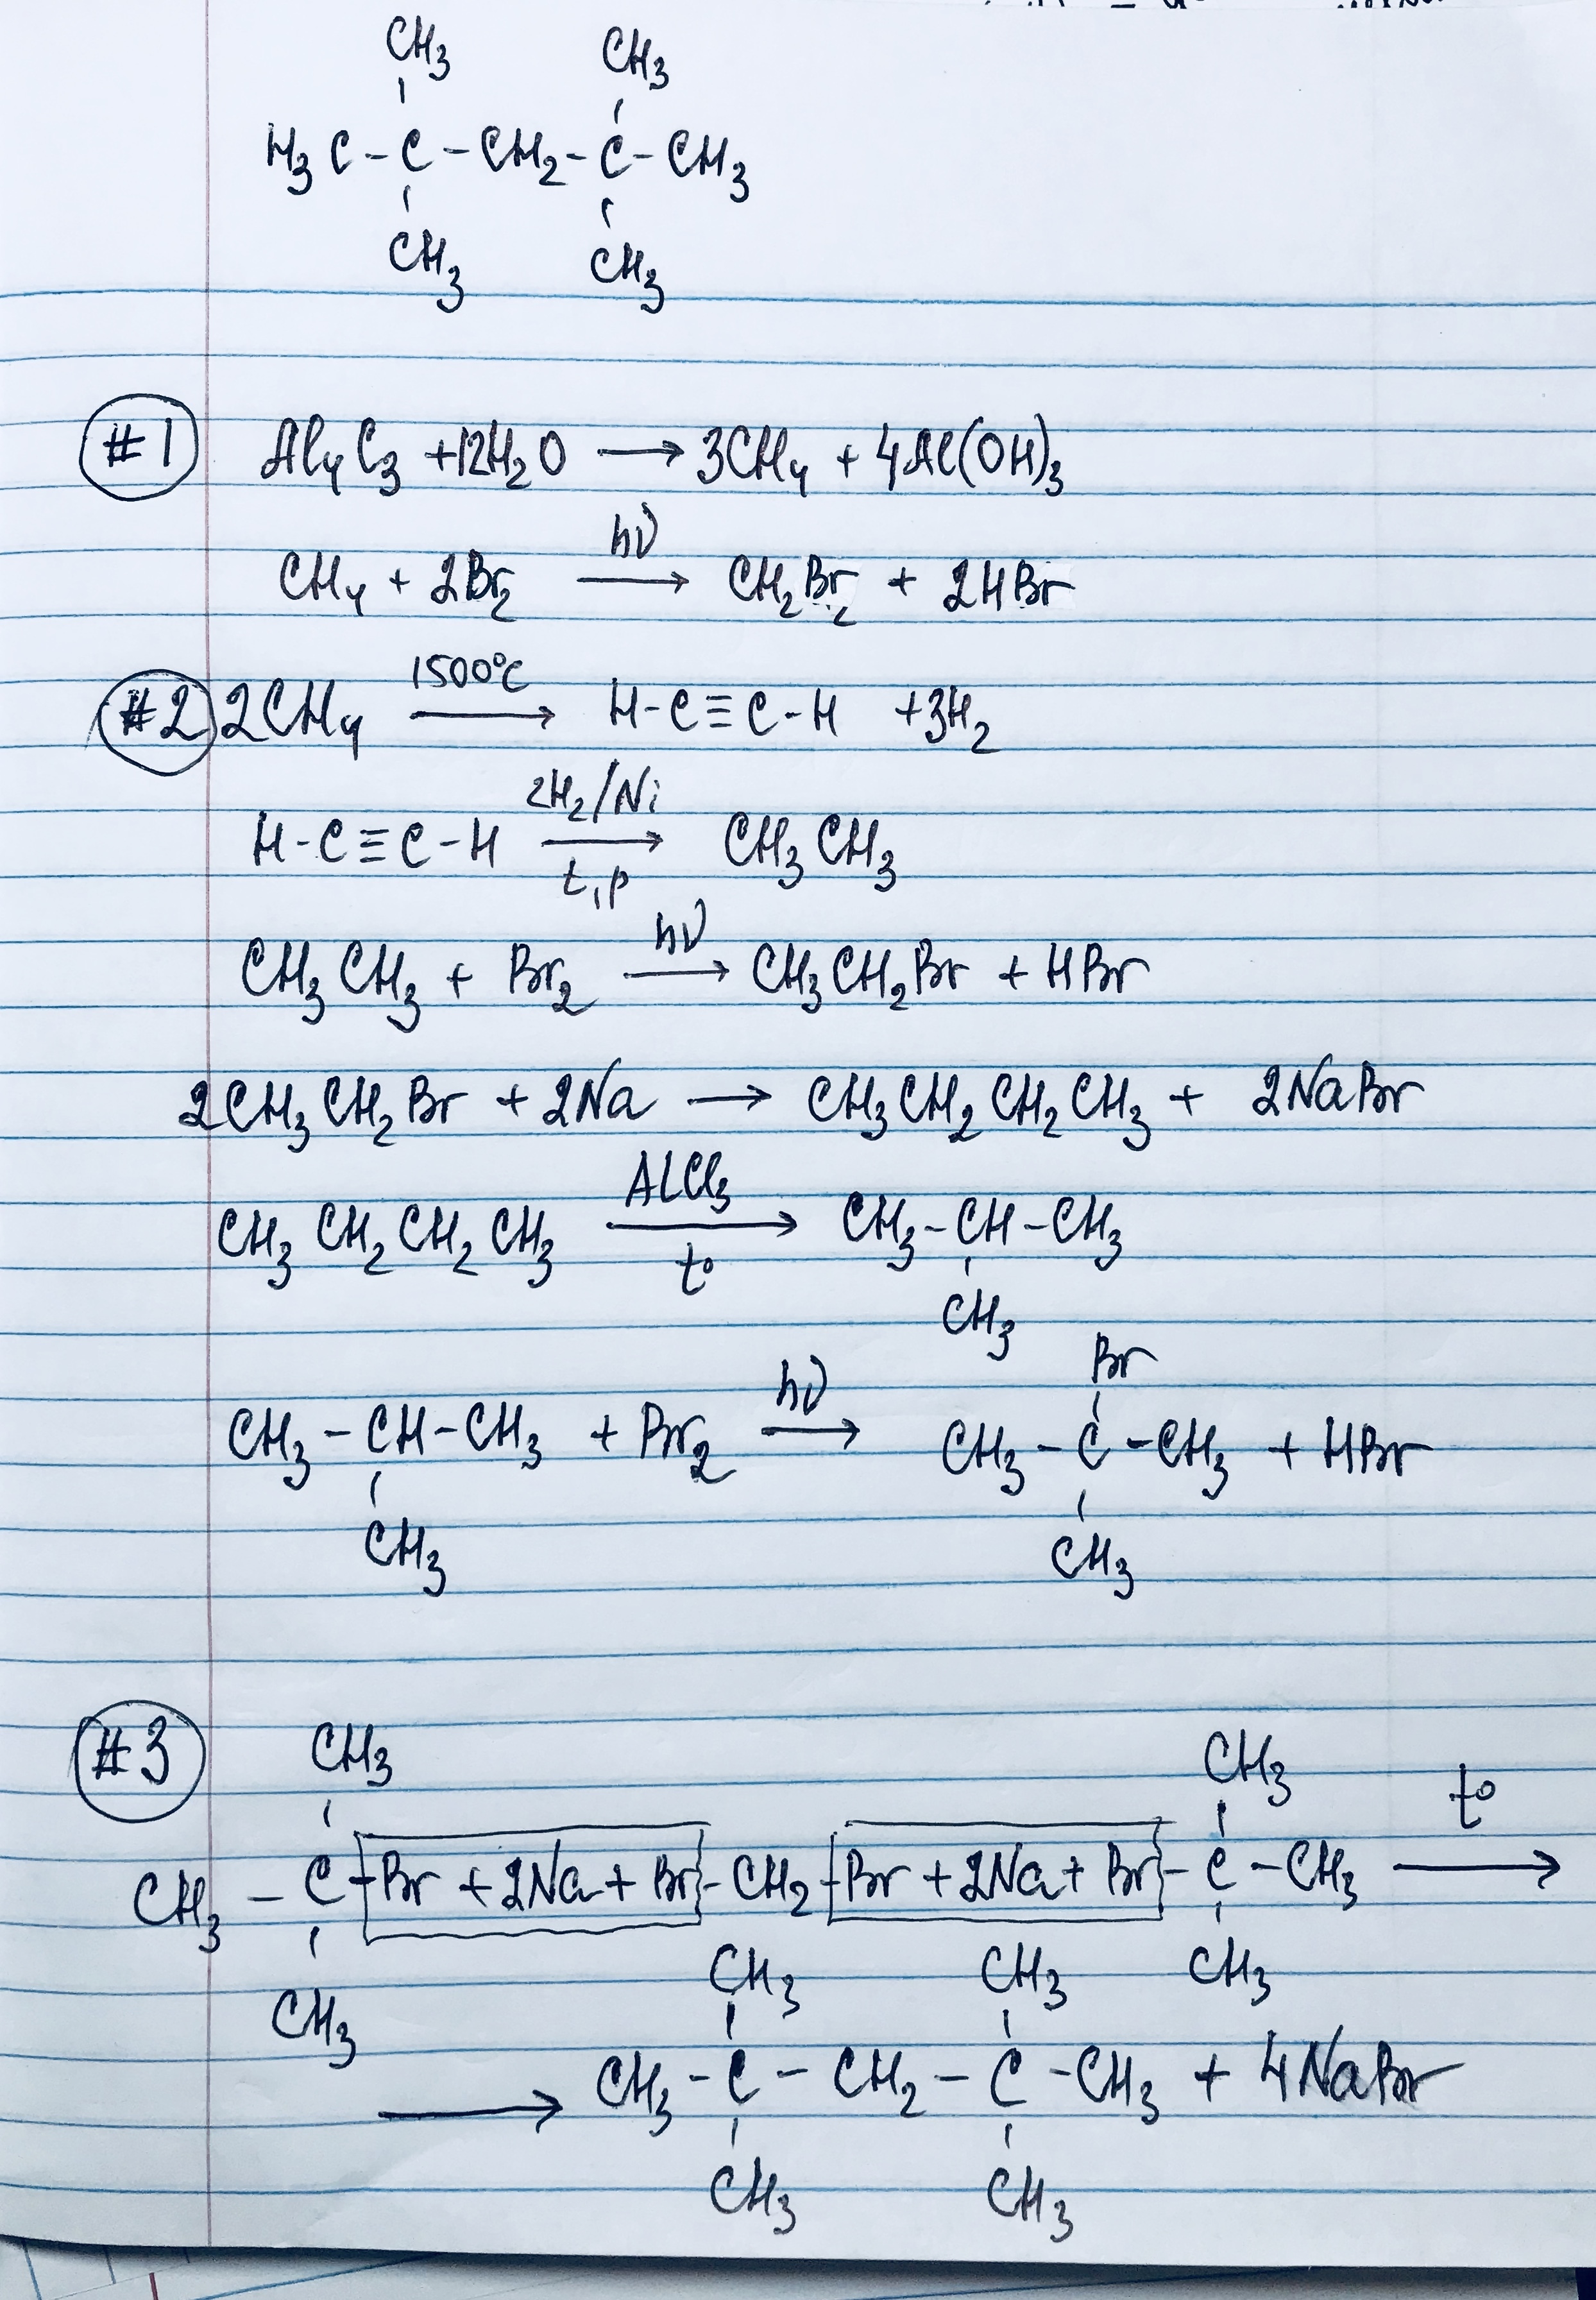 CH3 CH3
H3C-C-CH2-C-CH3
CH3 CH3
#1 Al4C3 +12H2O → 3CH4 + 4Al(OH)3
hν
CH4 + 2Br2 → CH2Br2 + 2HBr
1500°C
#2 2CH4 → H-C≡C-H +3H2
2H2/Ni
H-C≡C-H → CH3CH3
t,p
hν
CH3CH3 + Br2 → CH3CH2Br + HBr
2CH3CH2Br + 2Na → CH3CH2CH2CH3 + 2NaBr
AlCl3
CH3CH2CH2CH3 → CH3-CH-CH3
t°
CH3
Br
hν
CH3-CH-CH3 + Br2 → CH3-C-CH3 + HBr
CH3 CH3
#3
CH3 CH3
t°
CH3-C-Br + 2Na + Br-CH2-Br + 2Na + Br-C-CH3 →
CH3 CH3
CH3 CH3
→ CH3-C-CH2-C-CH3 + 4NaBr
CH3 CH3